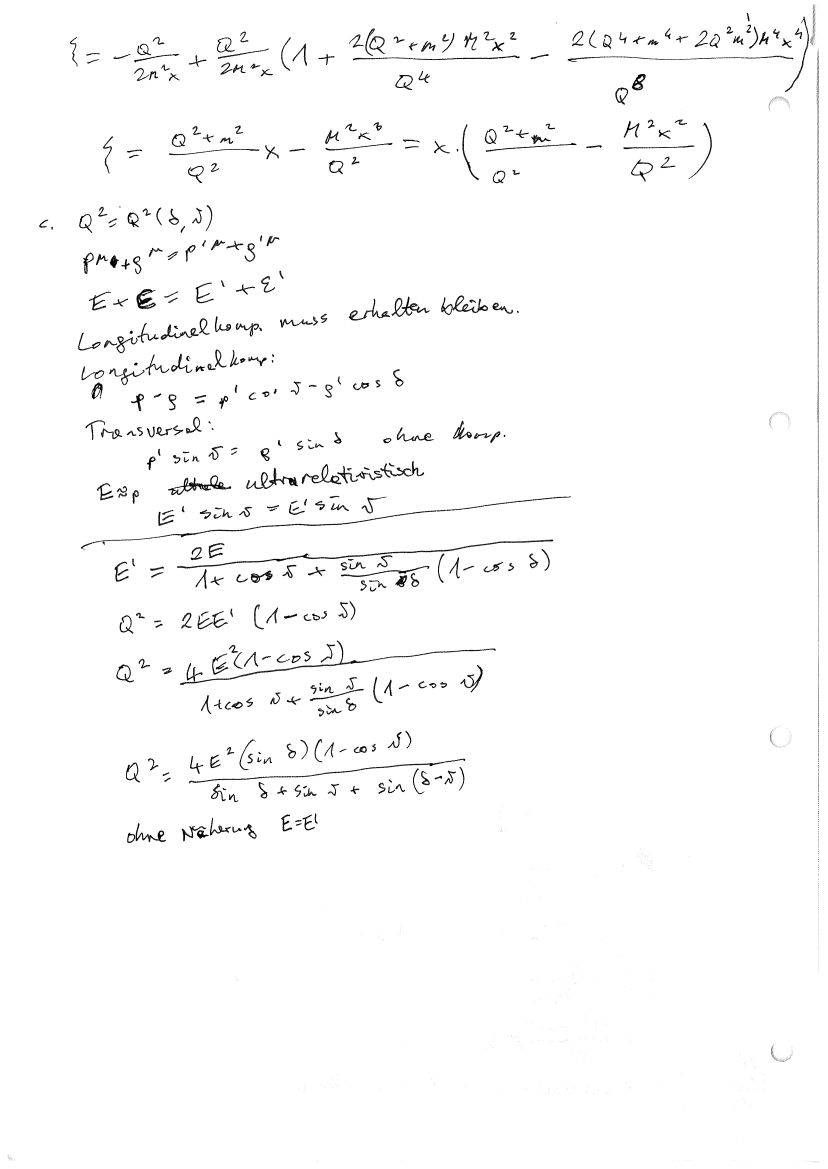 ξ = -Q²/2M²x + Q²/2M²x (1 + 2(Q²+m²)M²x²/Q⁴ - 2(Q⁴+m⁴+2Q²m²)M⁴x⁴/Q⁸)
ξ = (Q²+m²)/Q² x - M²x³/Q² = x·((Q²+m²)/Q² - M²x²/Q²)
c. Q² = Q²(δ, ϑ)
p^μ + q^μ = p'^μ + q'^μ
E + ε = E' + ε'
Longitudinalkomp. muss erhalten bleiben.
Longitudinalkomp:
p - q = p' cos ϑ - q' cos δ
Transversal:
p' sin ϑ = q' sin δ ohne Komp.
E≈p ultrarelativistisch
E' sin ϑ = E' sin ϑ
E' = 2E/(1 + cos ϑ + sin ϑ/sin δ (1 - cos δ))
Q² = 2EE' (1 - cos ϑ)
Q² = 4E²(1 - cos ϑ)/(1 + cos ϑ + sin ϑ/sin δ (1 - cos ϑ))
Q² = 4E²(sin δ)(1 - cos ϑ)/(sin δ + sin ϑ + sin (δ - ϑ))
ohne Näherung E=E'